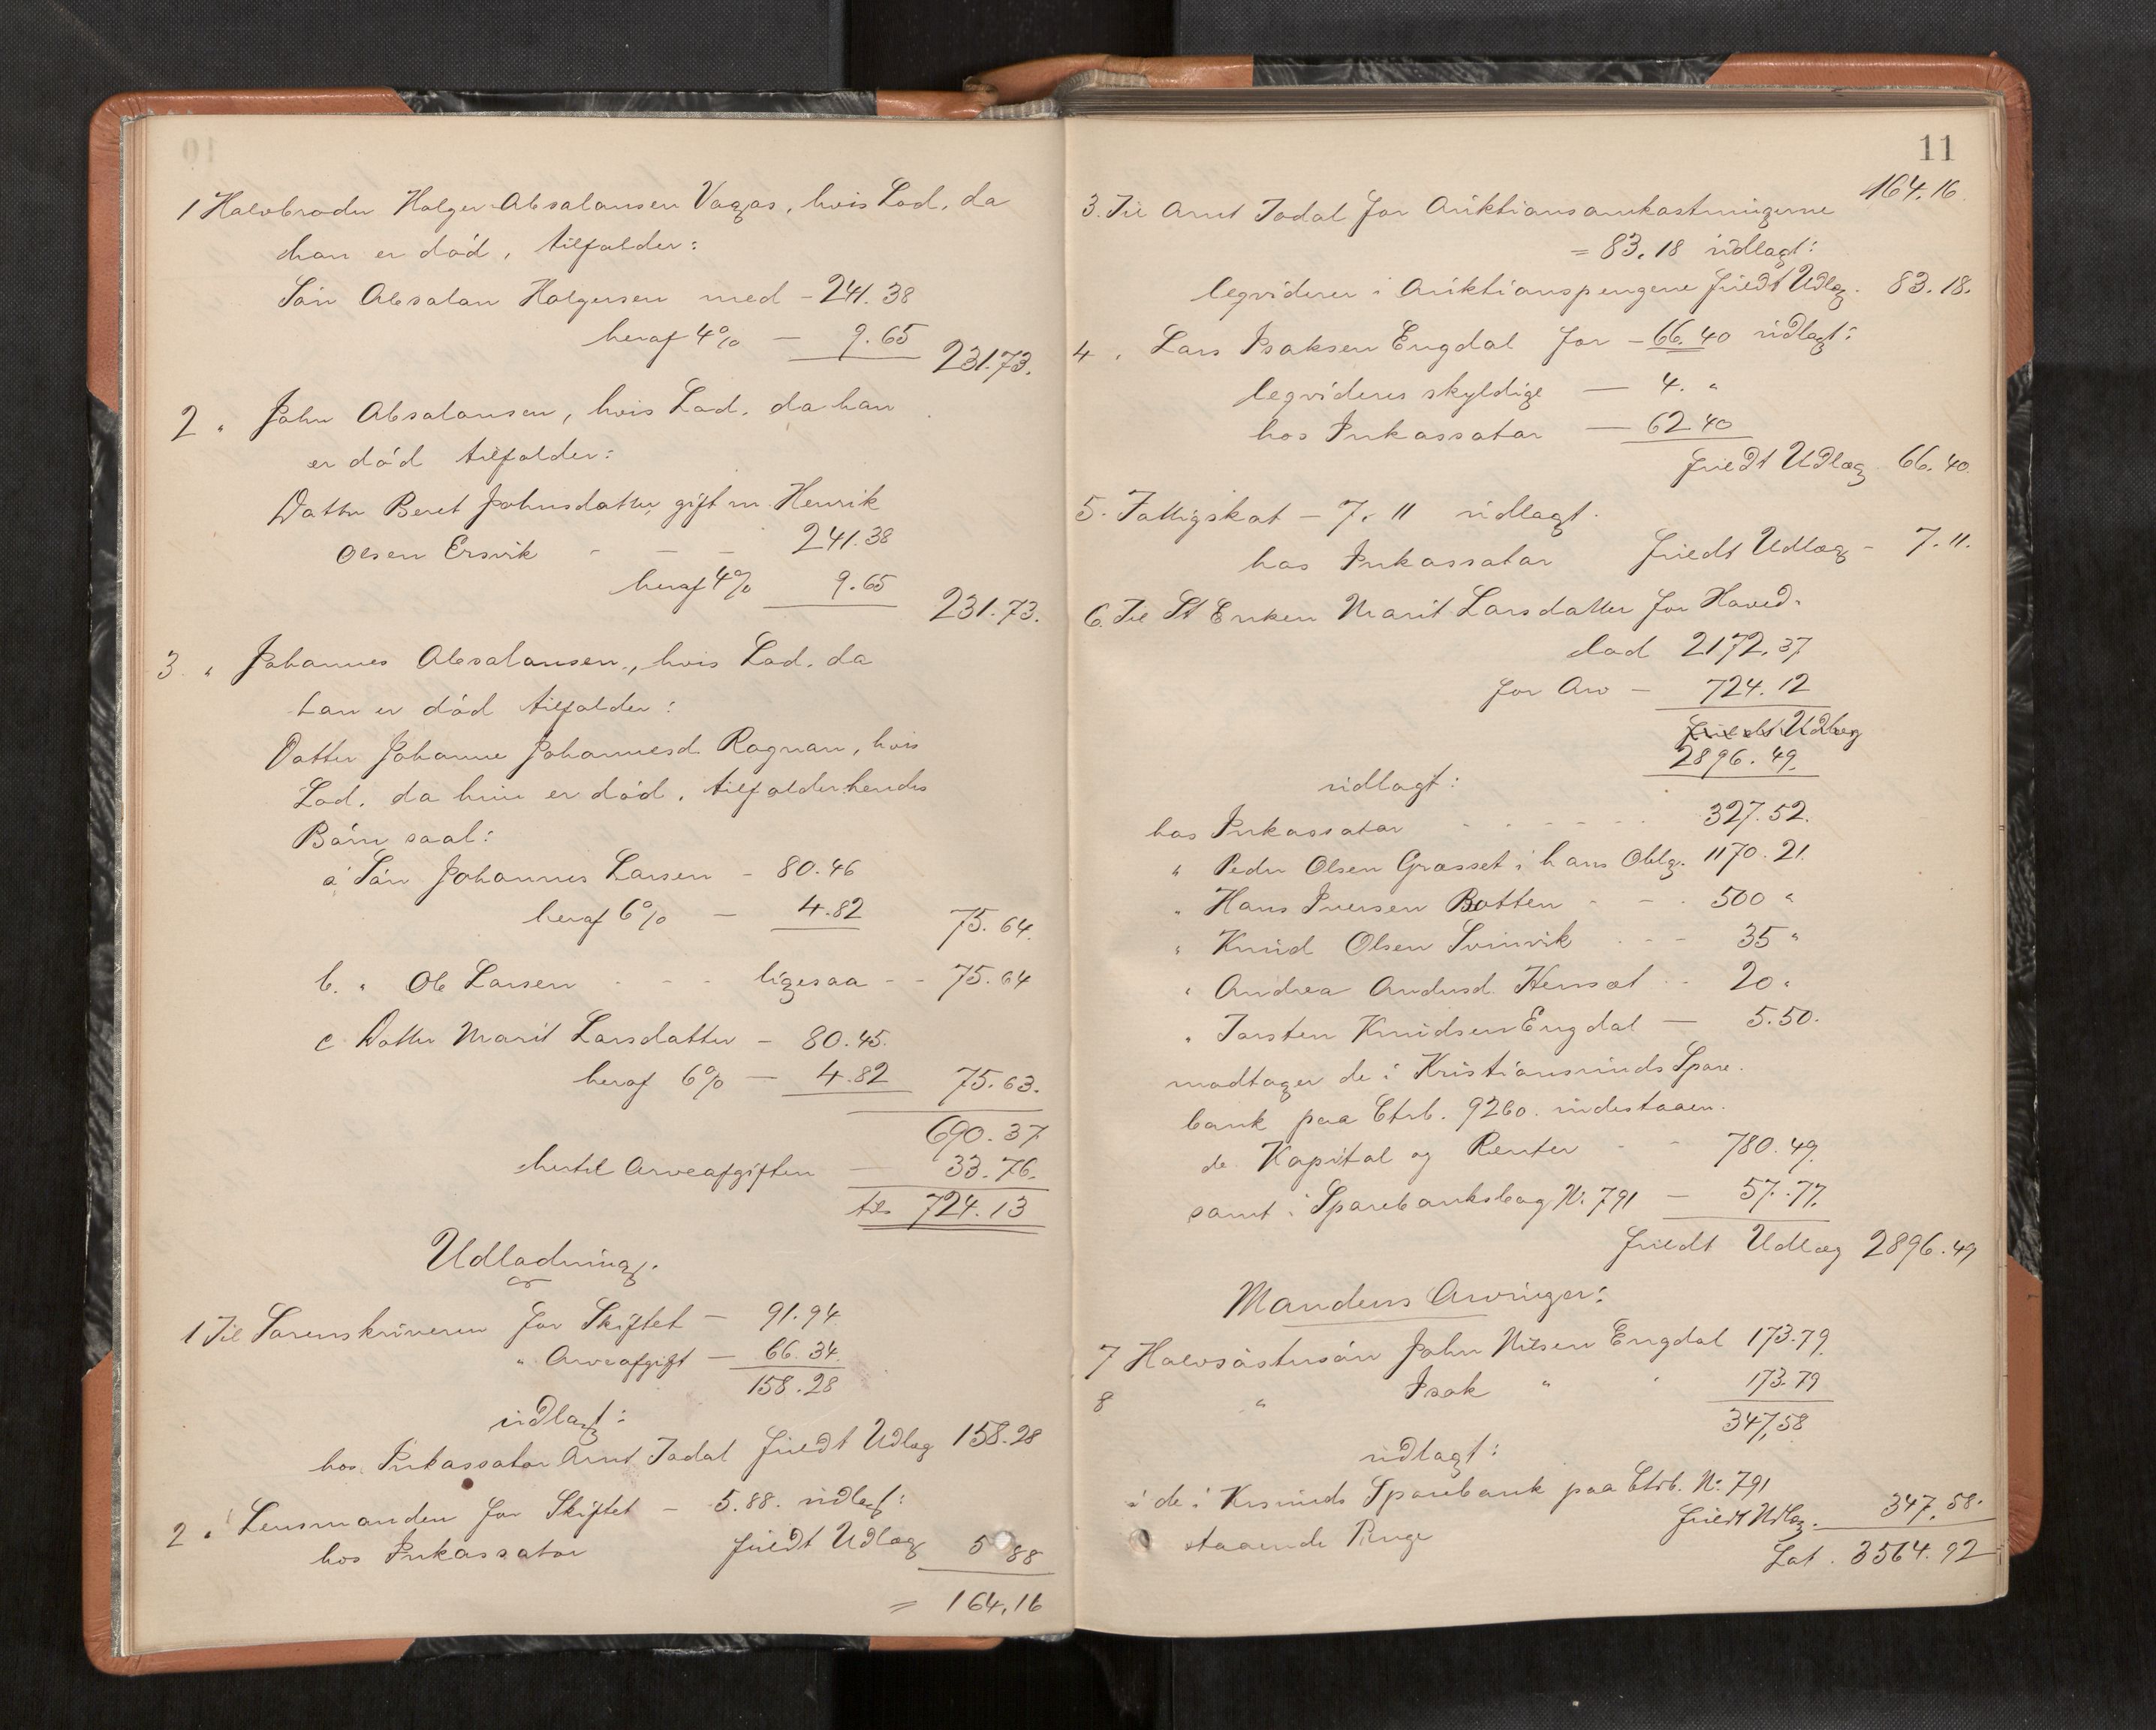 1 Halvbroder Holger Absalonsen Vaagos, hvis Lod, da
han er død, tilfalder:
Søn Absalon Holgersen med - 241.38
heraf 4% — 9.65 231.73.
2 " John Absalonsen, hvis Lod, da han
er død tilfalder:
Datter Beret Johnsdatter gift m Henrik
Olsen Ersvik - — — 241.38
heraf 4% 9.65 231.73.
3. " Johannes Absalonsen, hvis Lod, da
han er død tilfalder:
Datter Johanne Johannesd. Rognan, hvis
Lod, da hun er død, tilfalder hendes
Børn saal:
a Søn Johannes Larsen - 80.46
heraf 6% — 4.82 75.64.
b. " Ole Larsen - - - ligesaa - - 75.64
c Datter Marit Larsdatter - 80.45.
heraf 6% — 4.82 75.63.
690.37
hertil Arveafgiften — 33.76.
tils 724.13
Udlodning.
1 Til Sorenskriveren for Skiftet — 91.94
" Arveafgift — 66.34.
158.28
udlagt:
hos Inkassator Arnt Todal fuldt Udlæg 158.28
2 " Lensmanden for Skiftet — 5.88. udlagt:
hos Inkassator fuldt Udlæg 5 88
= 164.16
11
164.16.
3. Til Arnt Todal for Auktionsomkostningerne
= 83.18 udlagt:
leqviderer i Auktionspengene fuldt Udlæg. 83.18.
4 " Lars Isaksen Engdal for - 66.40 udlagt:
leqvideres skyldige — 4. "
hos Inkassator — 62.40
fuldt Udlæg 66.40.
5. Fattigskat - 7.11 udlagt.
hos Inkassator fuldt Udlæg - 7.11.
6. Til St Enken Marit Larsdatter for Hoved-
lod 2172.37
for Arv — 724.12
fuldt Udlæg
2896.49.
udlagt:
hos Inkassator - - - - - - 327.52.
" Peder Olsen Græsset i hans Oblg. 1170.21.
" Hans Iversen Botten - - - 500 "
" Knud Olsen Svinvik - - - 35 "
" Andrea Andersd. Henset - - 20 "
" Torsten Knudsen Engdal — 5.50.
modtager de i Kristiansunds Spare-
bank paa Ctrb. 9260. indestaaen-
de Kapital og Renter - - 780.49.
samt i Sparebanksbog N: 791 — 57.77.
fuldt Udlæg 2896.49
Mandens Arvinger:
7 Halvsøstersøn John Nilsen Engdal 173.79.
8 " Isak " " 173.79
347,58
udlagt:
i de i Krsunds Sparebank paa Ctrb. N: 791
staaende Penge fuldt Udlæg. 347,58.
Lat. 3564.92